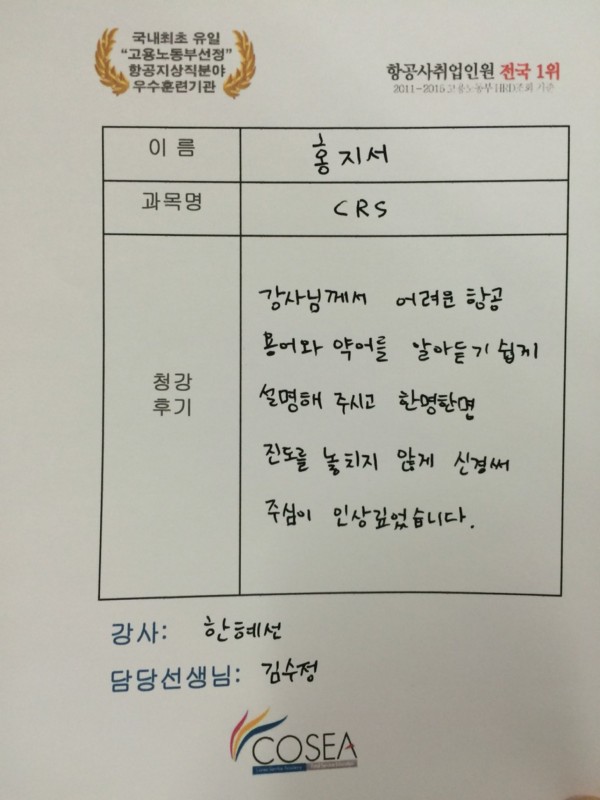 국내최초 유일
“고용노동부선정”
항공지상직분야
우수훈련기관
항공사취업인원 전국 1위
2011~2016 고용노동부 HRD조회 기준
이 름
홍지서
과목명
CRS
청강
후기
강사님께서 어려운 항공
용어와 약어를 알아듣기 쉽게
설명해 주시고 한명한면
진도를 놓치지 않게 신경써
주심이 인상깊었습니다.
강사: 한혜선
담당선생님: 김수정
COSEA